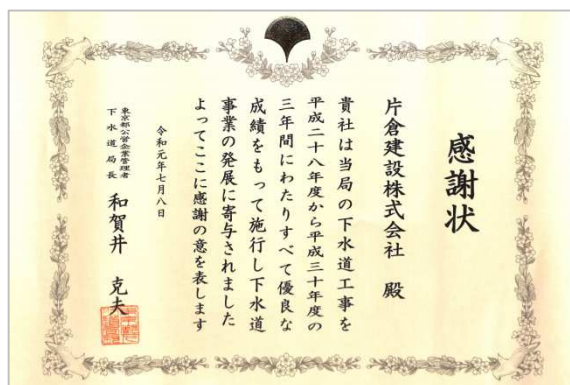 感謝状
片倉建設株式会社 殿
貴社は当局の下水道工事を
平成二十八年度から平成三十年度の
三年間にわたりすべて優良な
成績をもって施行し下水道
事業の発展に寄与されました
よってここに感謝の意を表します
令和元年七月八日
東京都公営企業管理者
下水道局長 和賀井 克夫